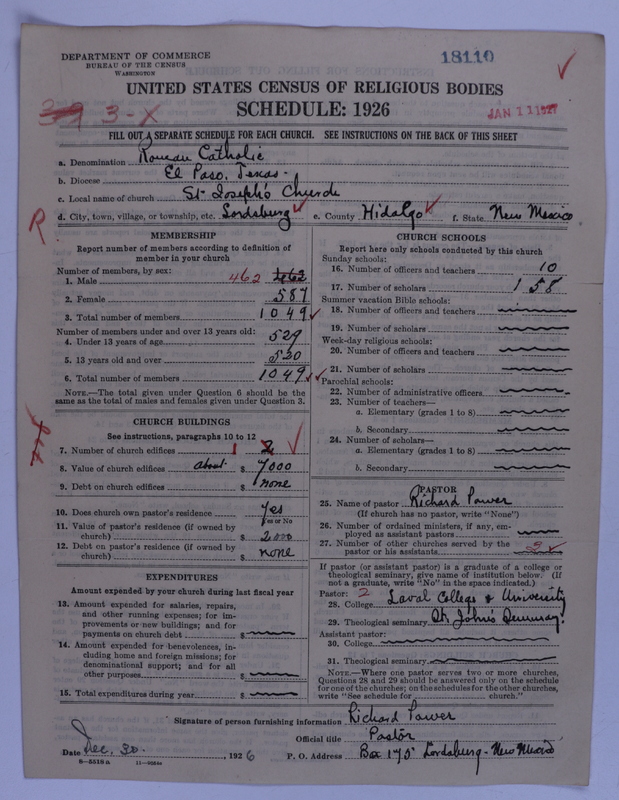 DEPARTMENT OF COMMERCE
BUREAU OF THE CENSUS
WASHINGTON
18110
UNITED STATES CENSUS OF RELIGIOUS BODIES
SCHEDULE: 1926
3-X
JAN 11 1927
FILL OUT A SEPARATE SCHEDULE FOR EACH CHURCH. SEE INSTRUCTIONS ON THE BACK OF THIS SHEET
a. Denomination Roman Catholic
b. Diocese El Paso, Texas.
c. Local name of church St. Joseph's Church
d. City, town, village, or township, etc. Lordsburg e. County Hidalgo f. State New Mexico
R
MEMBERSHIP
Report number of members according to definition of member in your church
Number of members, by sex:
1. Male 462 462
2. Female 587
3. Total number of members 1049
Number of members under and over 13 years old:
4. Under 13 years of age 529
5. 13 years old and over 520
6. Total number of members 1049
NOTE.—The total given under Question 6 should be the same as the total of males and females given under Question 3.
CHURCH BUILDINGS
See instructions, paragraphs 10 to 12
7. Number of church edifices 1 2
8. Value of church edifices about $ 7000
9. Debt on church edifices $ none
10. Does church own pastor's residence? Yes
Yes or No
11. Value of pastor's residence (if owned by church) $ 2000
12. Debt on pastor's residence (if owned by church) $ none
EXPENDITURES
Amount expended by your church during last fiscal year
13. Amount expended for salaries, repairs, and other running expenses; for improvements or new buildings; and for payments on church debt $
14. Amount expended for benevolences, including home and foreign missions; for denominational support; and for all other purposes $
15. Total expenditures during year $
CHURCH SCHOOLS
Report here only schools conducted by this church
Sunday schools:
16. Number of officers and teachers 10
17. Number of scholars 158
Summer vacation Bible schools:
18. Number of officers and teachers
19. Number of scholars
Week-day religious schools:
20. Number of officers and teachers
21. Number of scholars
Parochial schools:
22. Number of administrative officers
23. Number of teachers—
a. Elementary (grades 1 to 8)
b. Secondary
24. Number of scholars—
a. Elementary (grades 1 to 8)
b. Secondary
PASTOR
25. Name of pastor Richard Power
(If church has no pastor, write "None")
26. Number of ordained ministers, if any, employed as assistant pastors
27. Number of other churches served by the pastor or his assistants
If pastor (or assistant pastor) is a graduate of a college or theological seminary, give name of institution below. (If not a graduate, write "No" in the space indicated.)
Pastor: 2
28. College Laval College & University
29. Theological seminary St. John's Seminary.
Assistant pastor:
30. College
31. Theological seminary
NOTE.—Where one pastor serves two or more churches, Questions 28 and 29 should be answered only on the schedule for one of the churches; on the schedules for the other churches, write "See schedule for church."
Signature of person furnishing information Richard Power
Official title Pastor
Date Dec. 30. , 1926 P. O. Address Box 175 Lordsburg - New Mexico
8—5518a